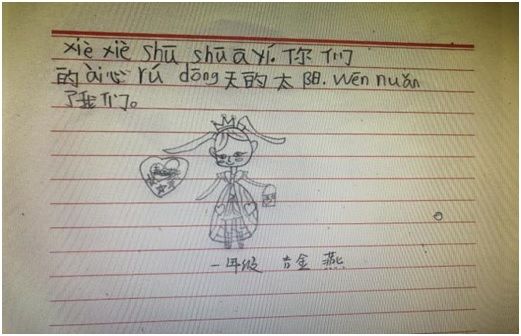 xiè xiè shū shū ā yí. 你们
的ài心rú dōng天的太阳. wēn nuǎn
了我们。
一年级 吉金燕